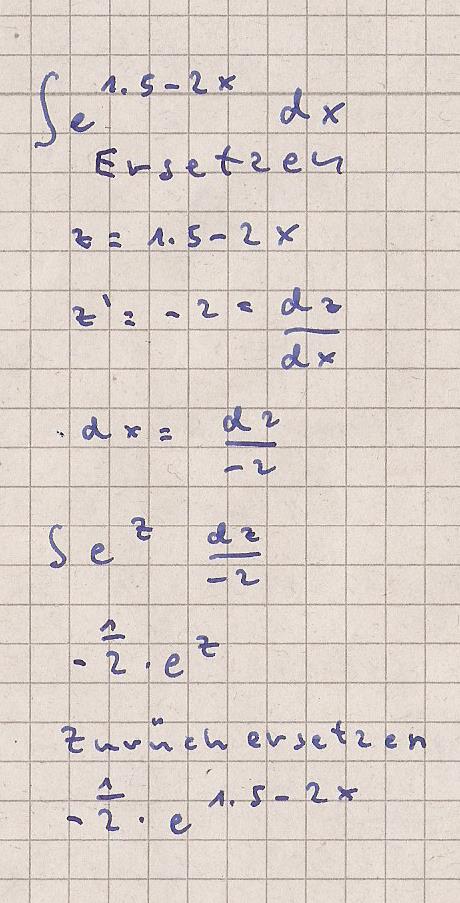 ∫ e^{1.5-2x} dx
Ersetzen
z = 1.5-2x
z' = -2 = dz/dx
dx = dz/-2
∫ e^z dz/-2
-1/2 · e^z
Zurück ersetzen
-1/2 · e^{1.5-2x}